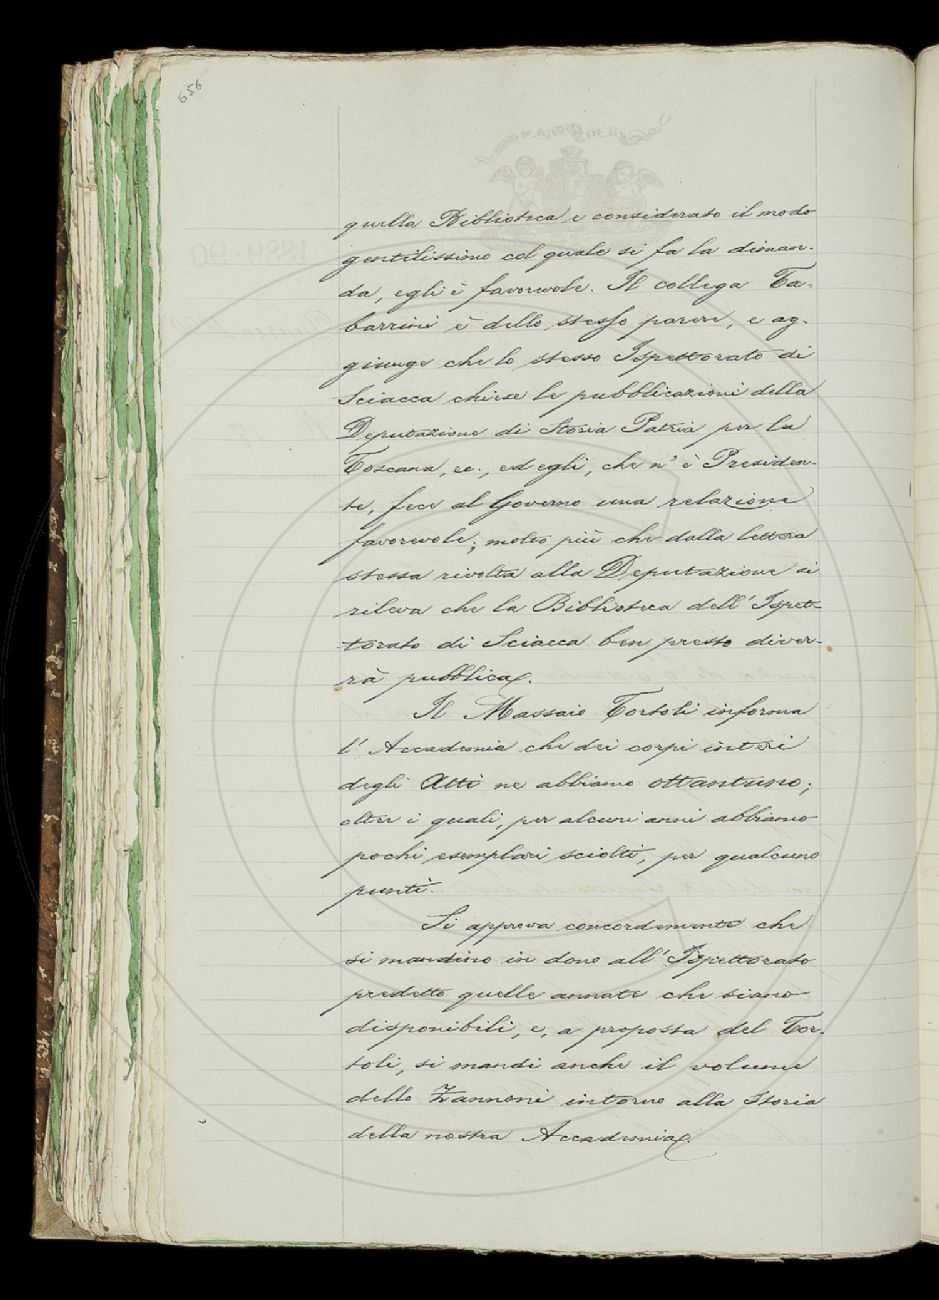 656
quella Biblioteca e considerato il modo
gentilissimo col quale si fa la diman-
da, egli è favorevole. Il collega Ta-
barrini è dello stesso parere, e ag-
giunge che lo stesso Ispettorato di
Sciacca chiese le pubblicazioni della
Deputazione di Storia Patria per la
Toscana, ec., ed egli, che n' è Presiden-
te, fece al Governo una relazione
favorevole; molto più che dalla lettera
stessa rivolta alla Deputazione si
rileva che la Biblioteca dell' Ispet-
torato di Sciacca ben presto diver-
rà pubblica.
Il Massaio Tortoli informa
l' Accademia che dei corpi interi
degli Atti ne abbiamo ottantuno;
oltre i quali, per alcuni anni abbiamo
pochi esemplari sciolti, per qualcuno
punti.
Si approva concordemente che
si mandino in dono all' Ispettorato
predetto quelle annate che siano
disponibili, e, a proposta del Tor-
toli, si mandi anche il volume
dello Zannoni intorno alla Storia
della nostra Accademia.